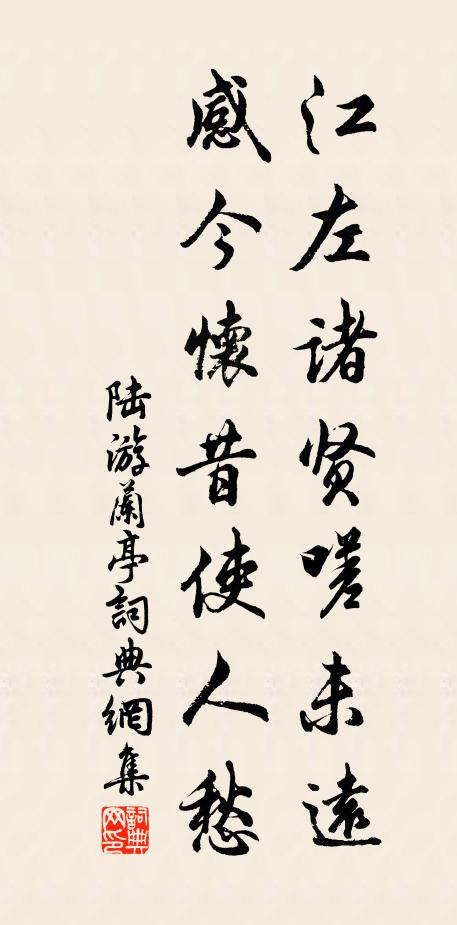 江左诸贤嗟未遠
感今懷昔使人愁
陆游蘭亭詞典網集
詞典网印